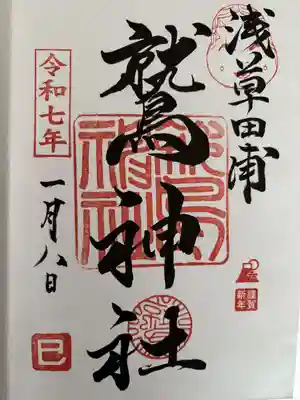 浅草田浦
鷲神社
令和七年
一月八日
巳
謹賀
新年